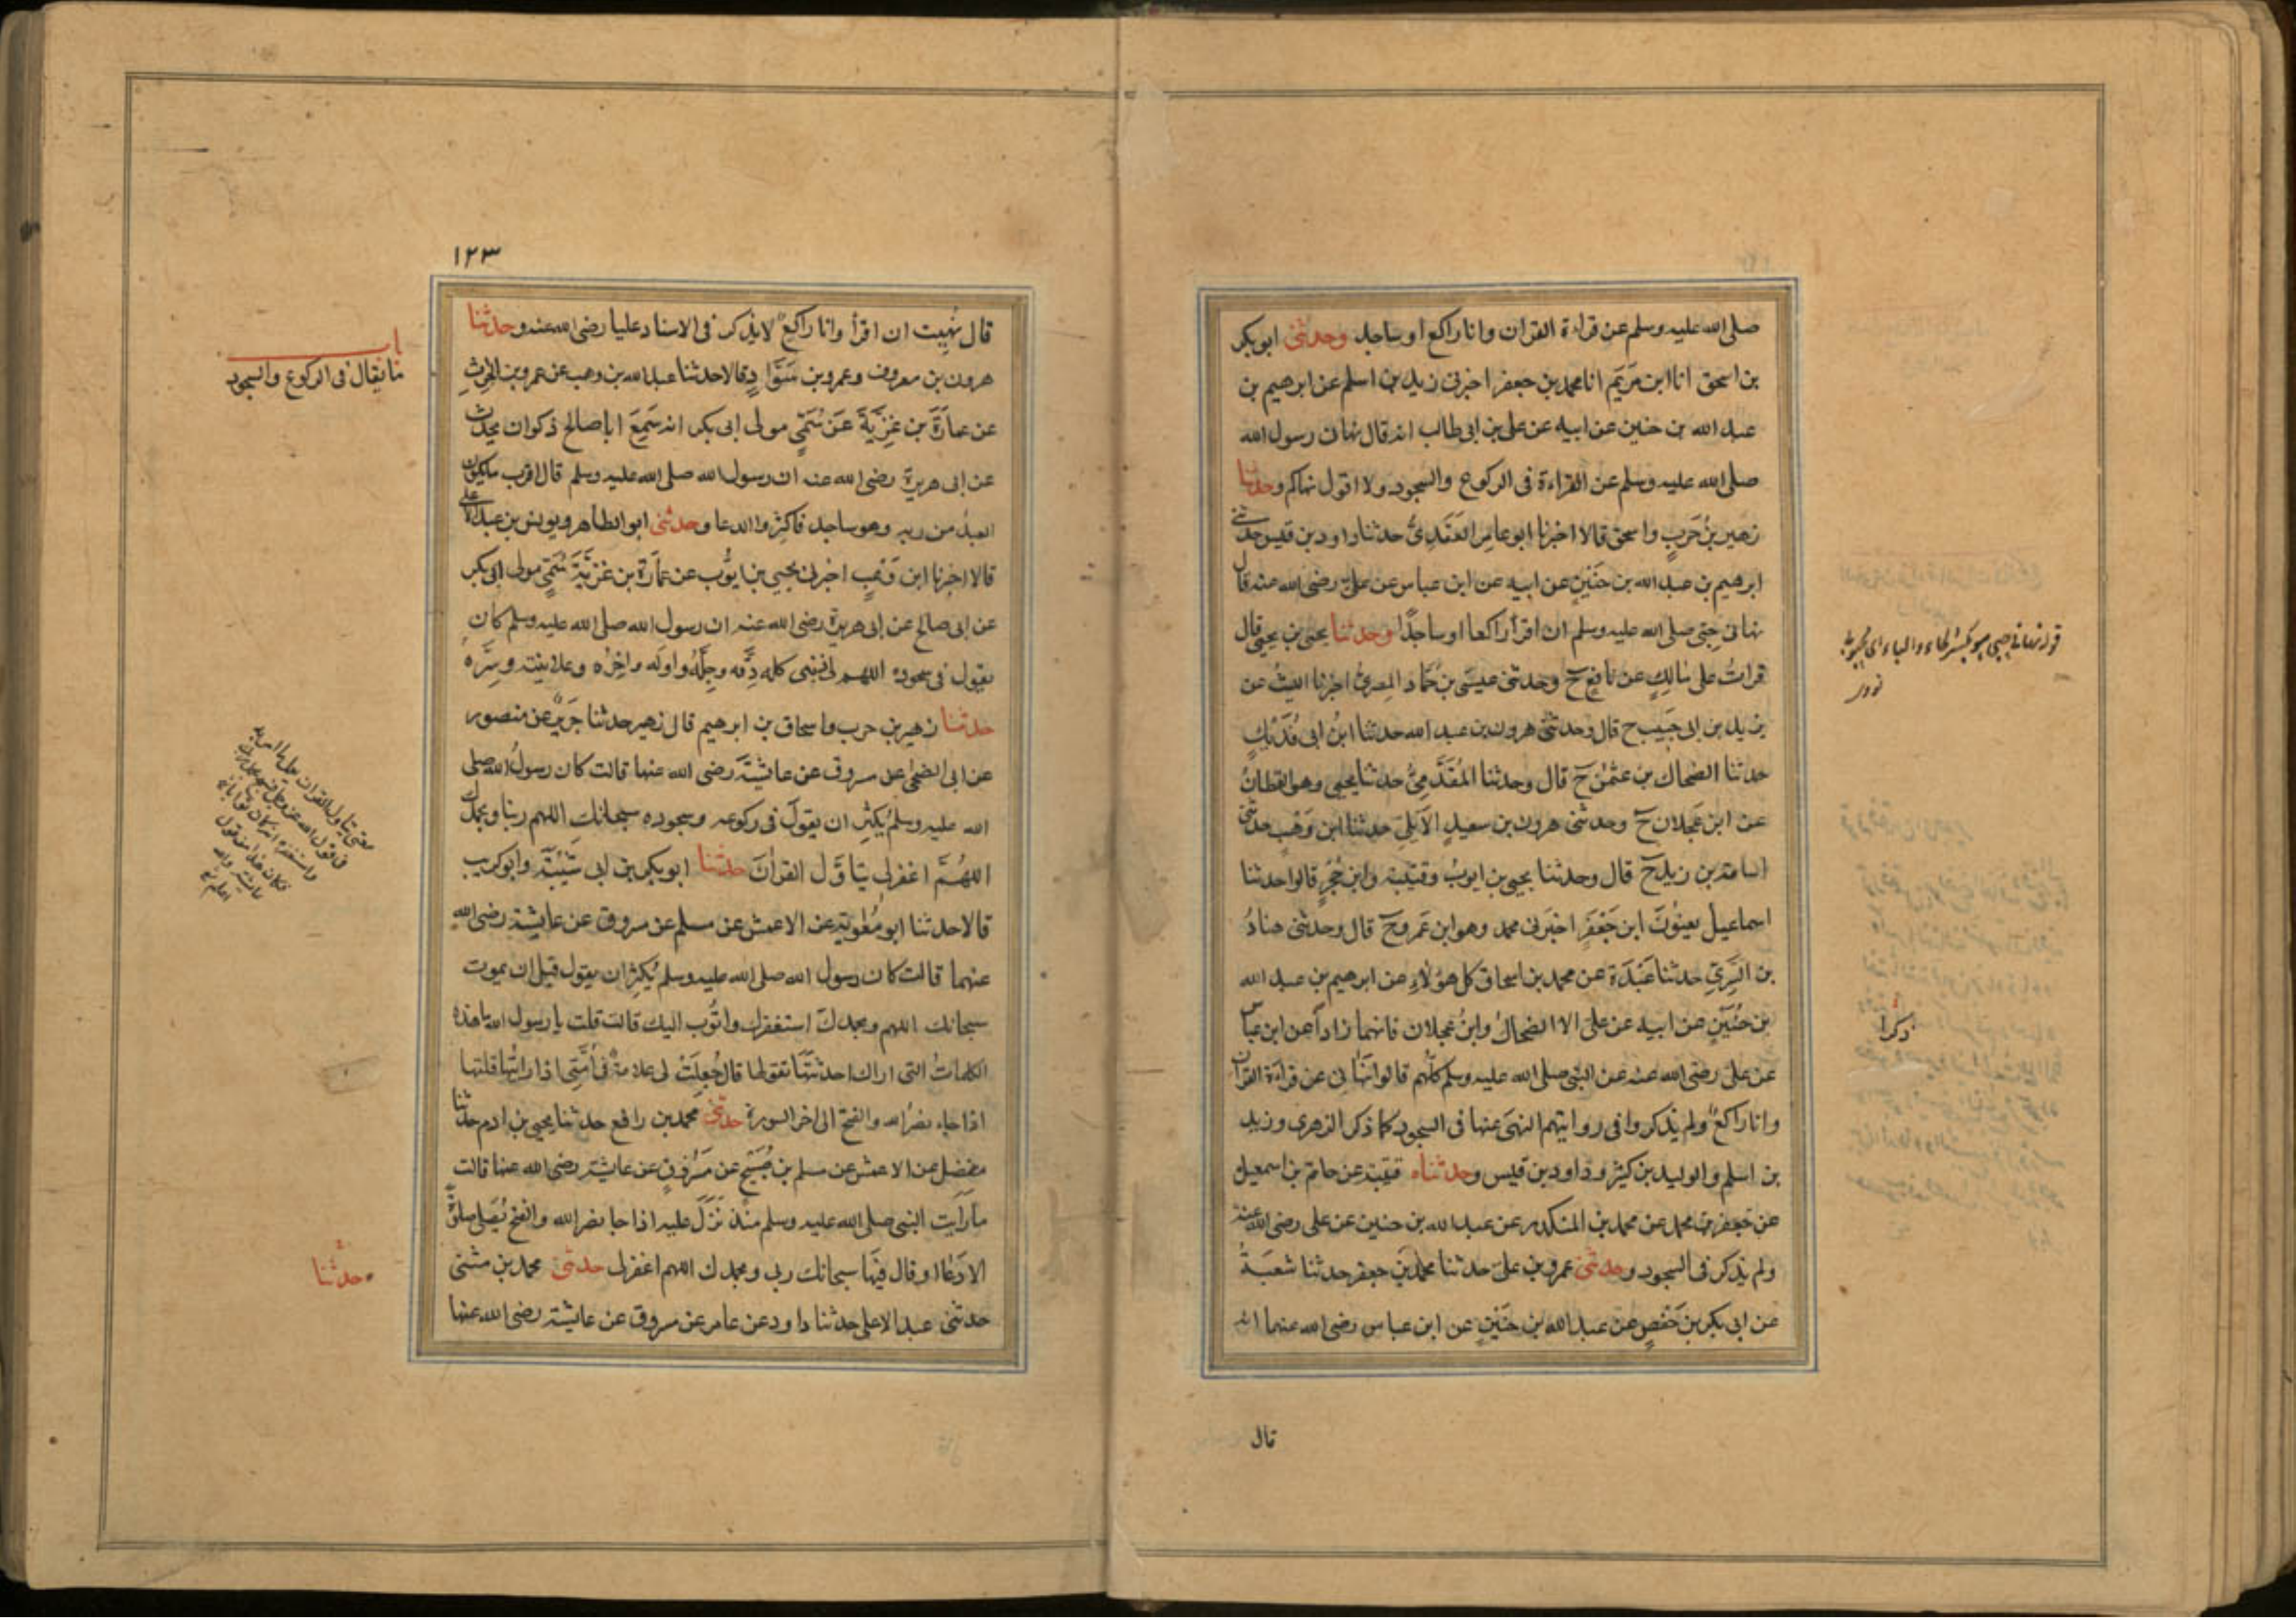 صلى الله عليه وسلم عن قراءة القران وانا راكع او ساجد وحدثنى ابو بكر
بن اسحق انا ابن مَريَم انا محمد بن جعفر اخبرنى زيد بن اسلم عن ابرهيم بن
عبد الله بن حنين عن ابيه عن على بن ابى طالب انه قال نهانى رسول الله
صلى الله عليه وسلم عن القراءة فى الركوع والسجود ولا اقول نهاكم وحدثنا
زهير بن حَربٍ واسحق قالا اخبرنا ابو عامِر العَقَدِىُّ حدثنا داود بن قيس حدثنى
ابرهيم بن عبد الله بن حُنَينٍ عن ابيه عن ابن عباس عن علىّ رضى الله عنه قال
نهانى حِبّى صلى الله عليه وسلم ان اقرأ راكعا او ساجدًا وحدثنا يحيى بن يحيى قال
قرات على مالِكٍ عن نافعٍ ح وحدثنى عيسَى بن حَمّاد المِصرىُّ اخبرنا الليثُ عن
يزيد بن ابى حَبيب ح قال وحدثنى هرون بن عبد الله حدثنا ابنُ ابى فُدَيكٍ
حدثنا الضحاك بن عثمٰن ح قال وحدثنا المُقَدَّمِىُّ حدثنا يحيى وهو القطانُ
عن ابن عَجلان ح وحدثنى هرون بن سعيدٍ الاَيلِىّ حدثنا ابن وَهب حدثنى
اسامة بن زيد ح قال وحدثنا يحيى بن ايوبُ وقتيبة وابن حُجرٍ قالوا حدثنا
اسماعيل يعنُونَ ابن جَعْفَرٍ اخبَرنى محمد وهو ابن عَمرو ح قال وحدثنى هنادُ
بن السَّرِىّ حدثنا عَبْدَة عن محمد بن اسحاق كل هؤلاءِ عن ابرهيم بن عبد الله
بن حُنَيْنٍ عن ابيه عن على الا الضحاك وابنُ عجلان فانهما زادا عن ابن عباس
عن على رضى الله عنه عن النبى صلى الله عليه وسلم كلُّهم قالوا نَهَانى عن قراءة القران
وانا راكعٌ ولم يذكروا فى روايتهم النهىَ عنها فى السجود كما ذكر الزهرى وزيد
بن اسلم والوليد بن كثير وداود بن قيس وحدثناه قتيبة عن حاتم بن اسمعيل
عن جَعفر بن محمد عن محمد بن المنكدر عن عبد الله بن حنين عن على رضى الله عنه
ولم يذكر فى السجود وحدثنى عمرو بن علىّ حدثنا محمد بن جعفر حدثنا شعبَةُ
عن ابى بكر بن حَفصٍ عن عبد الله بن حُنَينٍ عن ابن عباس رضى الله عنهما انه
قال
قوله نهانى حبى هو بكسر الحاء والباء اى محبوبه
ذكرا
١٢٣
قال نُهِيت ان اقرأ وانا راكعٌ لا يذكر فى الاسناد عليا رضى الله عنه وحدثنا
هرون بن معروف وعمرو بن سَوَّادٍ قالا حدثنا عبد الله بن وهب عن عمرو بن الحرثِ
عن عمارَةَ بن غَزِيَّةَ عَن سُمَىٍّ مولى ابى بكر انه سَمِعَ ابا صالح ذكوان يحدث
عن ابى هريرة رضى الله عنه ان رسول الله صلى الله عليه وسلم قال اقرب ما يكون
العبدُ من ربه وهو ساجد فاكثِروا الدعا وحدثنى ابو الطاهر ويونس بن عبد الاعلى
قالا اخبرنا ابن وَهبٍ اخبرنى يحيى بن ايُّوب عن عمارَة بن غزيَّة سُمَىٍّ مولى ابى بكر
عن ابى صالح عن ابى هريرة رضى الله عنه ان رسول الله صلى الله عليه وسلم كان
يقول فى سجوده اللهم ذنبى كله دِقَّه وجِلَّهُ واوله واخِرُه وعلانيته وسِرَّهُ
حدثنا زهير بن حرب واسحاق بن ابرهيم قال زهير حدثنا جَرِيرٌ عن منصور
عن ابى الضحى عن مسروق عن عايشَة رَضى الله عنها قالت كان رسولُ الله صلى
الله عليه وسلم يُكثِر ان يقولَ فى ركوعه وسجوده سبحانك اللهم ربنا وبحمدك
اللهُمَّ اغفر لى يتاوَّل القرانَ حدثنا ابو بكر بن ابى شَيْبَةَ وابو كريب
قالا حدثنا ابو مُعٰوية عن الاعمش عن مسلم عن مسروق عن عايشة رضى الله
عنهما قالت كان رسول الله صلى الله عليه وسلم يُكثِر ان يقول قبل ان يموت
سبحانك اللهم وبحمدك استغفرك واتُوب اليك قالت قلت يا رسول الله ما هذه
الكلماتُ التى اراك احدثتَها تقولها قال جُعِلَتْ لى علامةٌ فى اُمَّتِى اذا رايتُها قلتها
اذا جاء نصرُ الله والفتح الى اخر السورة حدثنى محمد بن رافع حدثنا يحيى بن ادم حدثنا
مفضل عن الاعمش عن مسلم بن صُبَيْحٍ عن مَسْرُوقٍ عن عايشة رضى الله عنها قالت
ما رأيت النبى صلى الله عليه وسلم منذ نَزَلَ عليه اذا جا نصر الله والفتح يُصَلى صلوةً
الا دَعَا او قال فِيهَا سبحانك ربى وبحمدك اللهم اغفر لى حدثنى محمد بن مثنى
حدثنى عبد الاعلى حدثنا داود عن عامر عن مسروق عن عايشة رضى الله عنها
باب
ما يقال فى الركوع والسجود
حدثنا